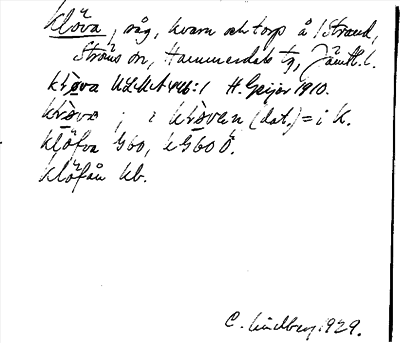 Klöva, såg, kvarn och torp å 1 Strand,
Ströms sn, Hammerdals tg, Jämtl. l.
klöva ULMA 446:1 H. Geijer 1910.
i (dat.) = i K.
Klöfva G60, kG60Ö.
Klöfån kb.
C. Lindberg 1929.